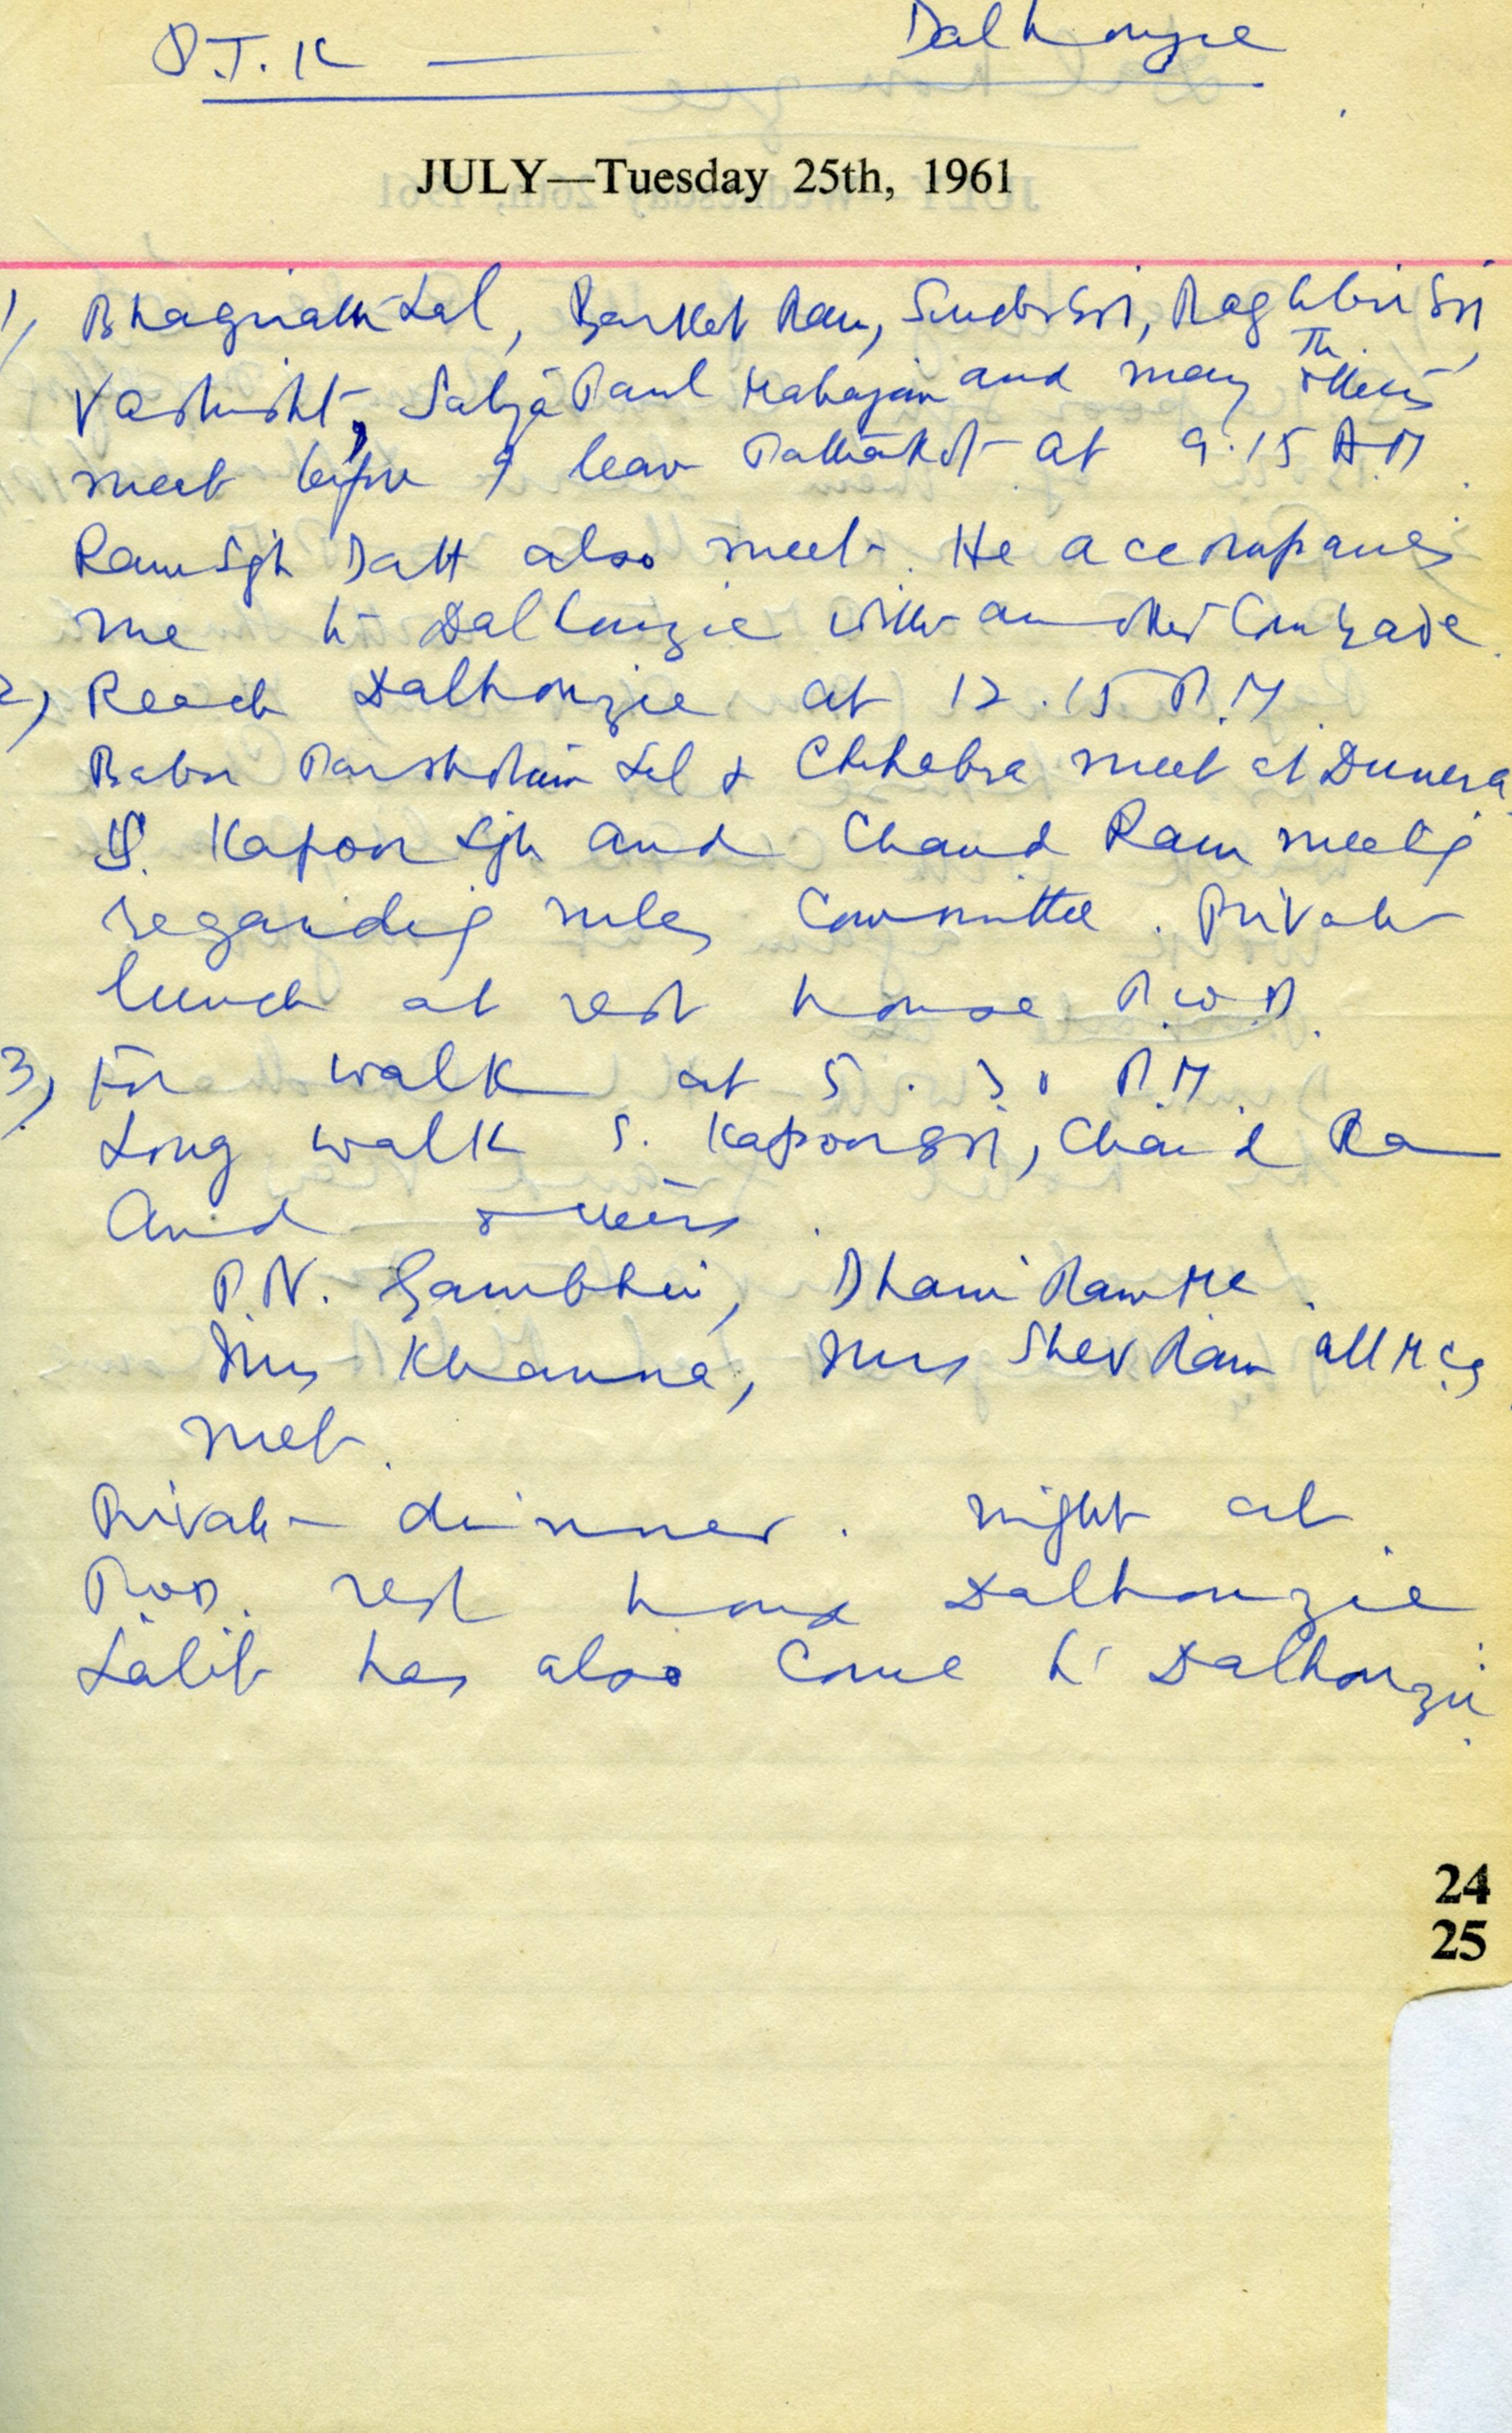 P.T.K — Dalhousie
JULY—Tuesday 25th, 1961
1, Bhagnath Lal, Barket Ram, Raghbir
Vashisht, Satya Paul Mahajan and many others
meet before I leave Pathankot at 9.15 A.M.
Ram Sgh Datt also meet. He accompanies
me to Dalhouzie with another Comrade.
2) Reach Dalhouzie at 12.15 P.M.
Babu Parshotam Lal & Chhabra meet at Dunera
S. Kapoor Sgh and Chand Ram meetg
regarding rules Committee. Private
lunch at rest house P.W.D.
3) For walk at 5.30 P.M.
Long walk S. Kapoor , Chand Ram
and others.
P.N. Gambhir, Dhani Ram
Mrs Khanna, Mrs Shev Ram all M.C.s
met.
Private dinner. night at
P.W.D. rest house Dalhouzie
Lalit has also come to Dalhouzie.
24
25